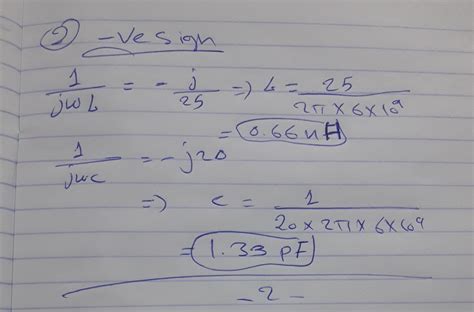 ② -ve sign
1/jωL = -j/25 => L = 25/2π×6×10⁹
= 0.66nH
1/jωc = -j20
=> c = 1/20×2π×6×10⁹
= 1.33 pF
- 2 -